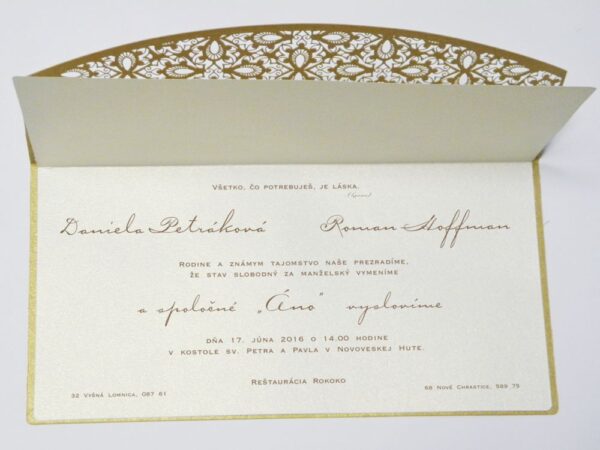 Všetko, čo potrebuješ, je láska.
Daniela Petráková Roman Hoffman
Rodine a známym tajomstvo naše prezradíme,
že stav slobodný za manželský vymeníme
a spoločné „Áno" vyslovíme
dňa 17. júna 2016 o 14.00 hodine
v kostole sv. Petra a Pavla v Novoveskej Hute.
Reštaurácia Rokoko
32 Vyšná Lomnica, 087 61
68 Nové Chrastice, 589 75